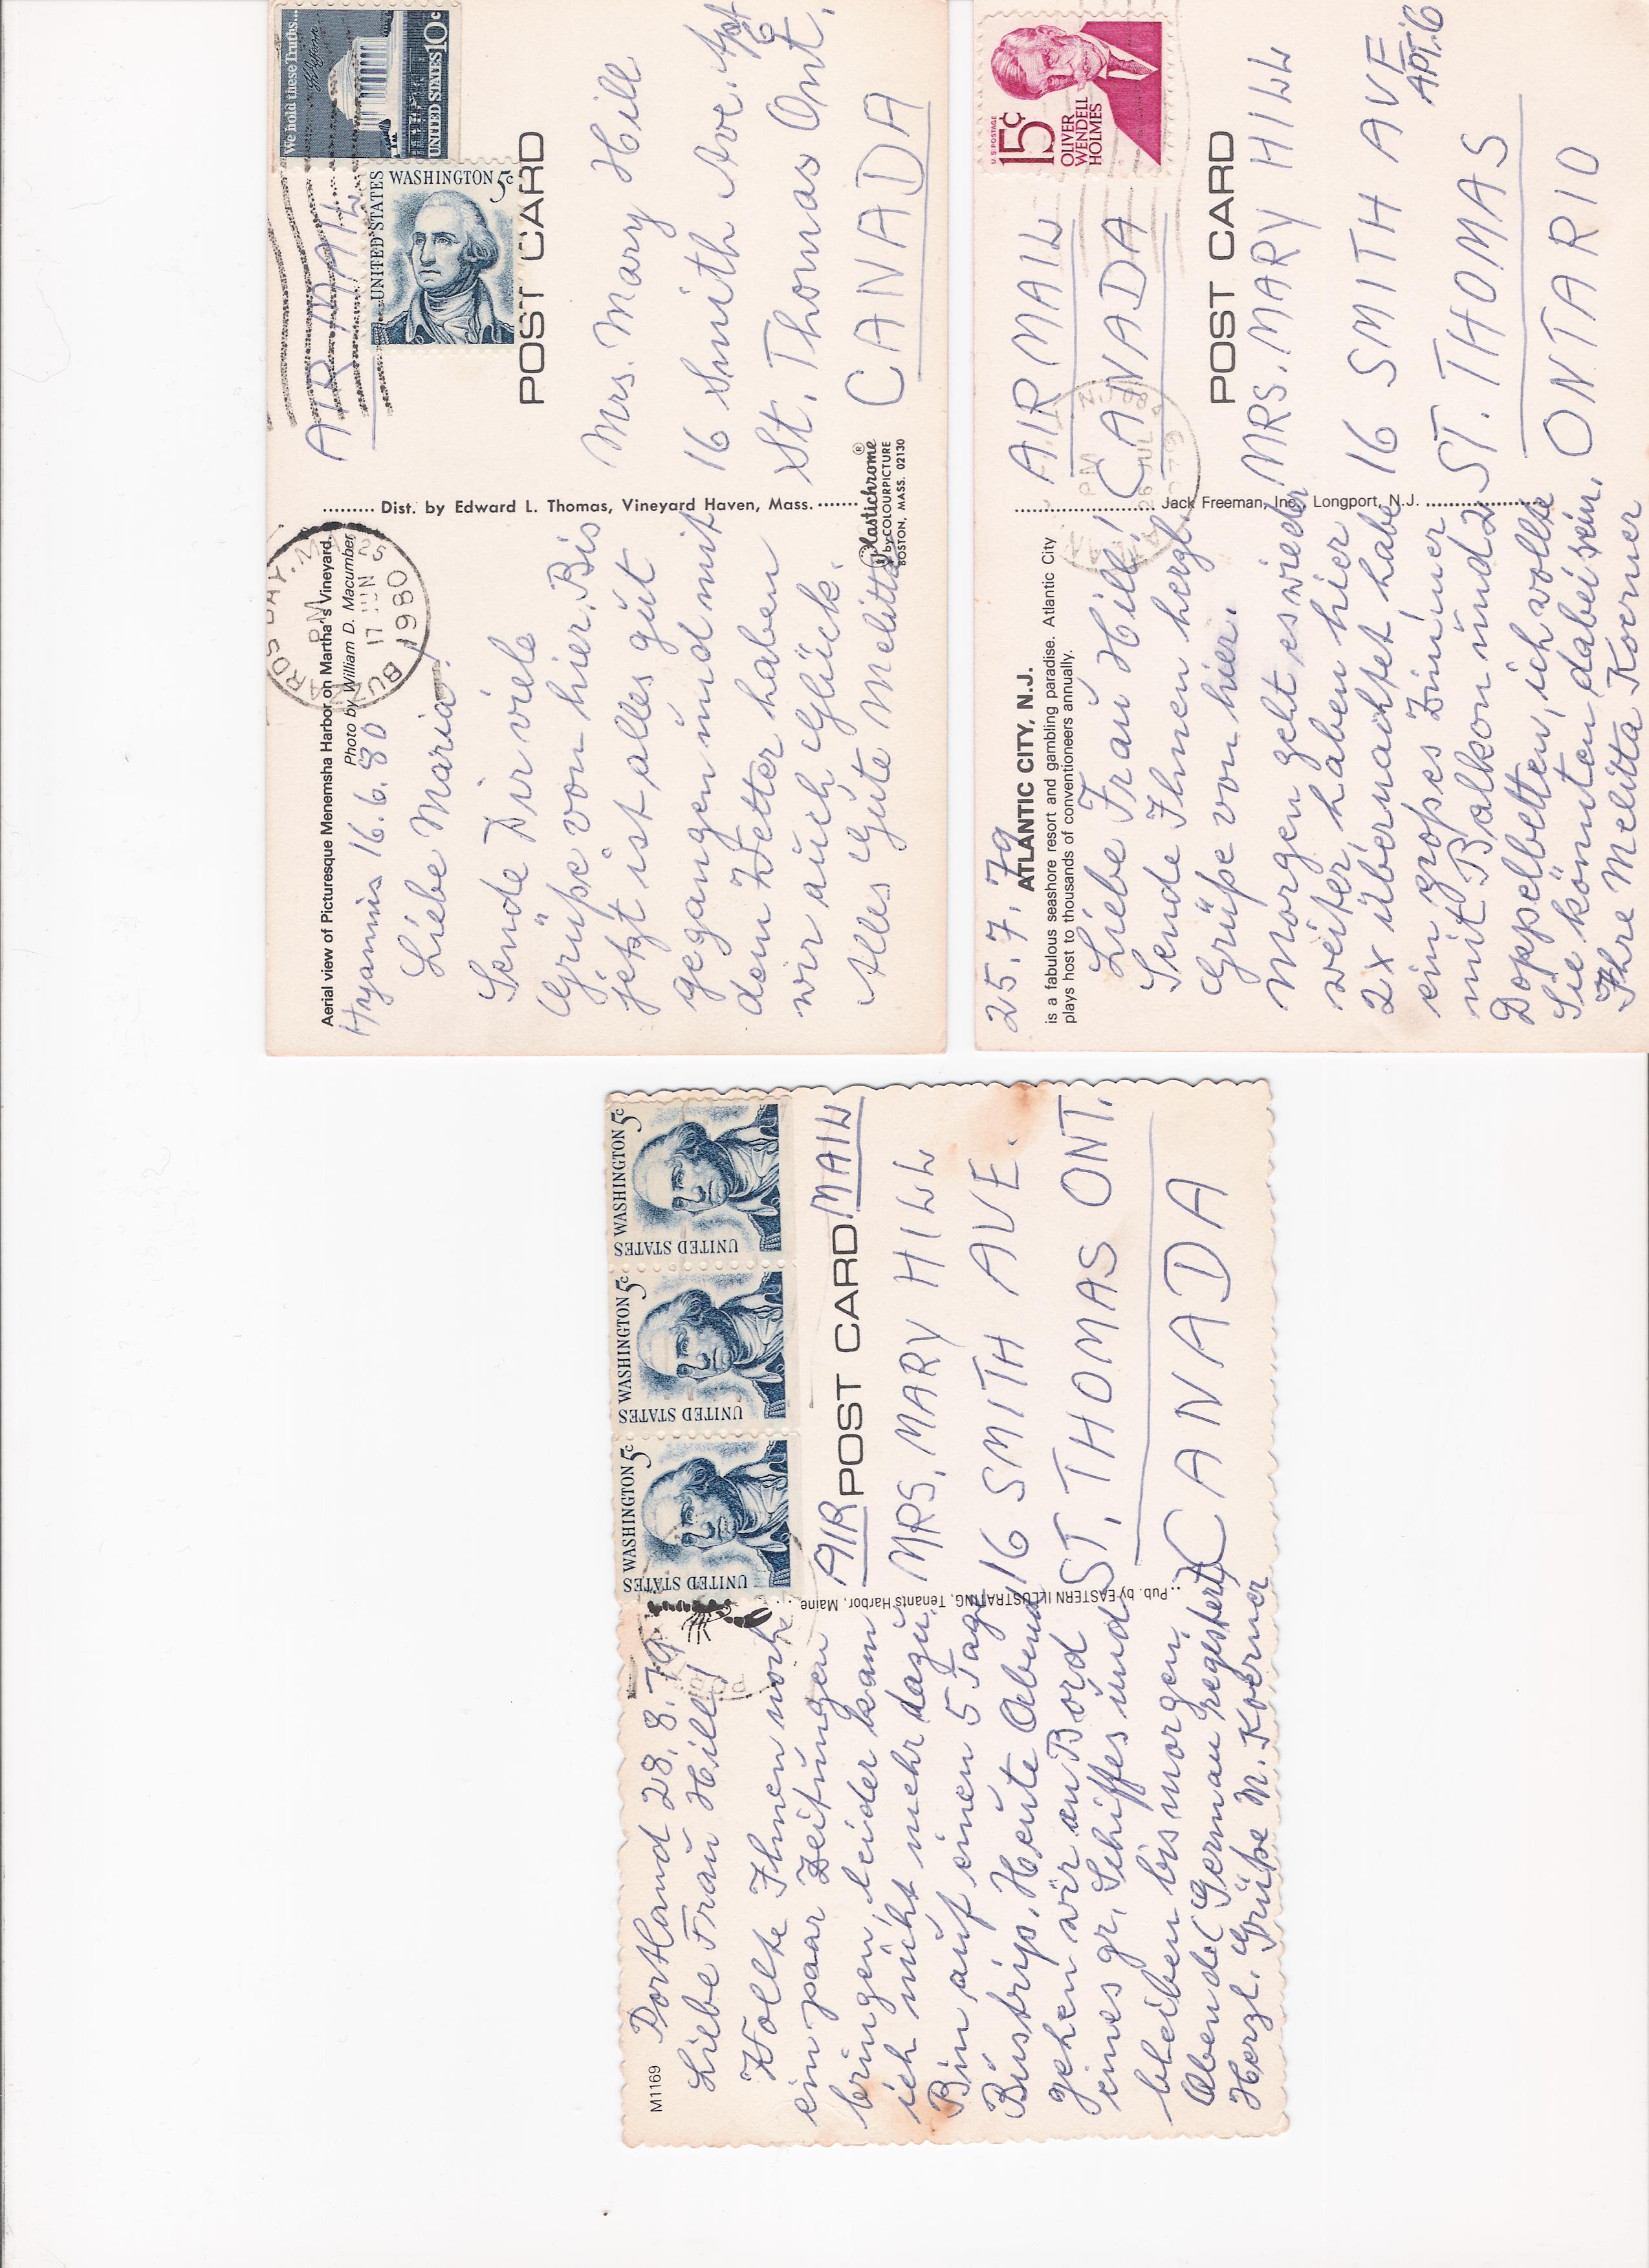 Aerial view of Picturesque Menemsha Harbor on Martha's Vineyard.
Photo by William D. Macumber
Hyannis 16.6.80
Liebe Maria!
Sende Dir viele
Grüße von hier. Bis
jetzt ist alles gut
gegangen und mit
dem Wetter haben
wir auch Glück.
Alles Gute Melitta
BUZZARDS BAY, MA
PM
17 JUN
1980
025
Dist. by Edward L. Thomas, Vineyard Haven, Mass.
Plastichrome®
by COLOURPICTURE
BOSTON, MASS. 02130
We hold these Truths...
UNITED STATES 10c
UNITED STATES WASHINGTON 5c
AIR MAIL
POST CARD
Mrs. Mary Hill
16 Smith Ave. Apt 6
St. Thomas Ont.
CANADA
25.7.79
ATLANTIC CITY, N.J.
is a fabulous seashore resort and gambling paradise. Atlantic City
plays host to thousands of conventioneers annually.
Liebe Frau Hill!
Sende Ihnen herzl.
Grüße von hier.
Morgen geht es wieder
weiter, haben hier
2x übernachtet, habe
ein großes Zimmer
mit Balkon und 2
Doppelbetten, ich wollte
Sie könnten dabei sein.
Ihre Melitta Koerner
Jack Freeman, Inc., Longport, N.J.
US POSTAGE
15¢
OLIVER
WENDELL
HOLMES
NJ 084
PM
26 JUL
1979
AIR MAIL
CANADA
POST CARD
MRS. MARY HILL
16 SMITH AVE
APT. 6
ST. THOMAS
ONTARIO
M1169
Portland 28.8.79
Liebe Frau Hill!
Wollte Ihnen noch
ein paar Zeitungen
bringen, leider kam
ich nicht mehr dazu.
Bin auf einem 5 Tag
Bustrip. Heute Abend
gehen wir an Bord
eines gr. Schiffes und
bleiben bis morgen
Abend (German registert)
Herzl. Grüße M. Koerner
Pub. by EASTERN ILLUSTRATING, Tenants Harbor, Maine
UNITED STATES WASHINGTON 5c
UNITED STATES WASHINGTON 5c
UNITED STATES WASHINGTON 5c
AIR MAIL
POST CARD
MRS. MARY HILL
16 SMITH AVE.
ST. THOMAS ONT.
CANADA